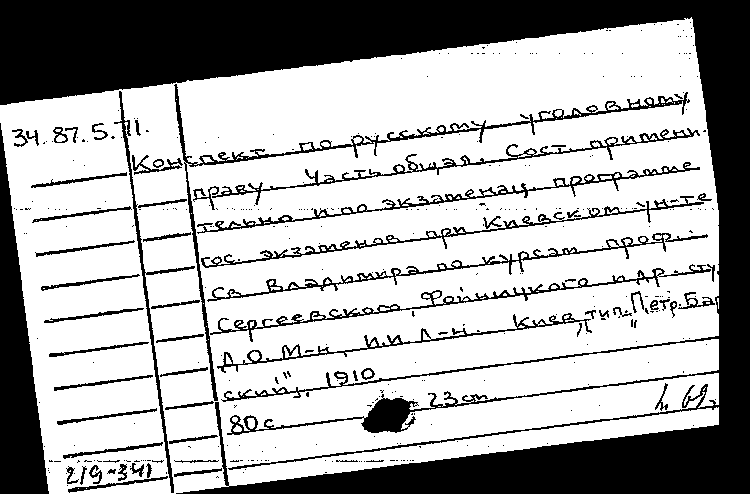 34.87.5.71.
Конспект по русскому уголовному
праву. Часть общая. Сост. примени-
тельно и по экзаменац. программе
гос. экзаменов при Киевском ун-те
Св. Владимира по курсам проф.:
Сергеевского, Фойницкого и др. сту.
Д.О. М-н, И.И. Л-н. Киев, тип. "Петр. Бар
ский", 1910.
80 с. 23 см.
219-341